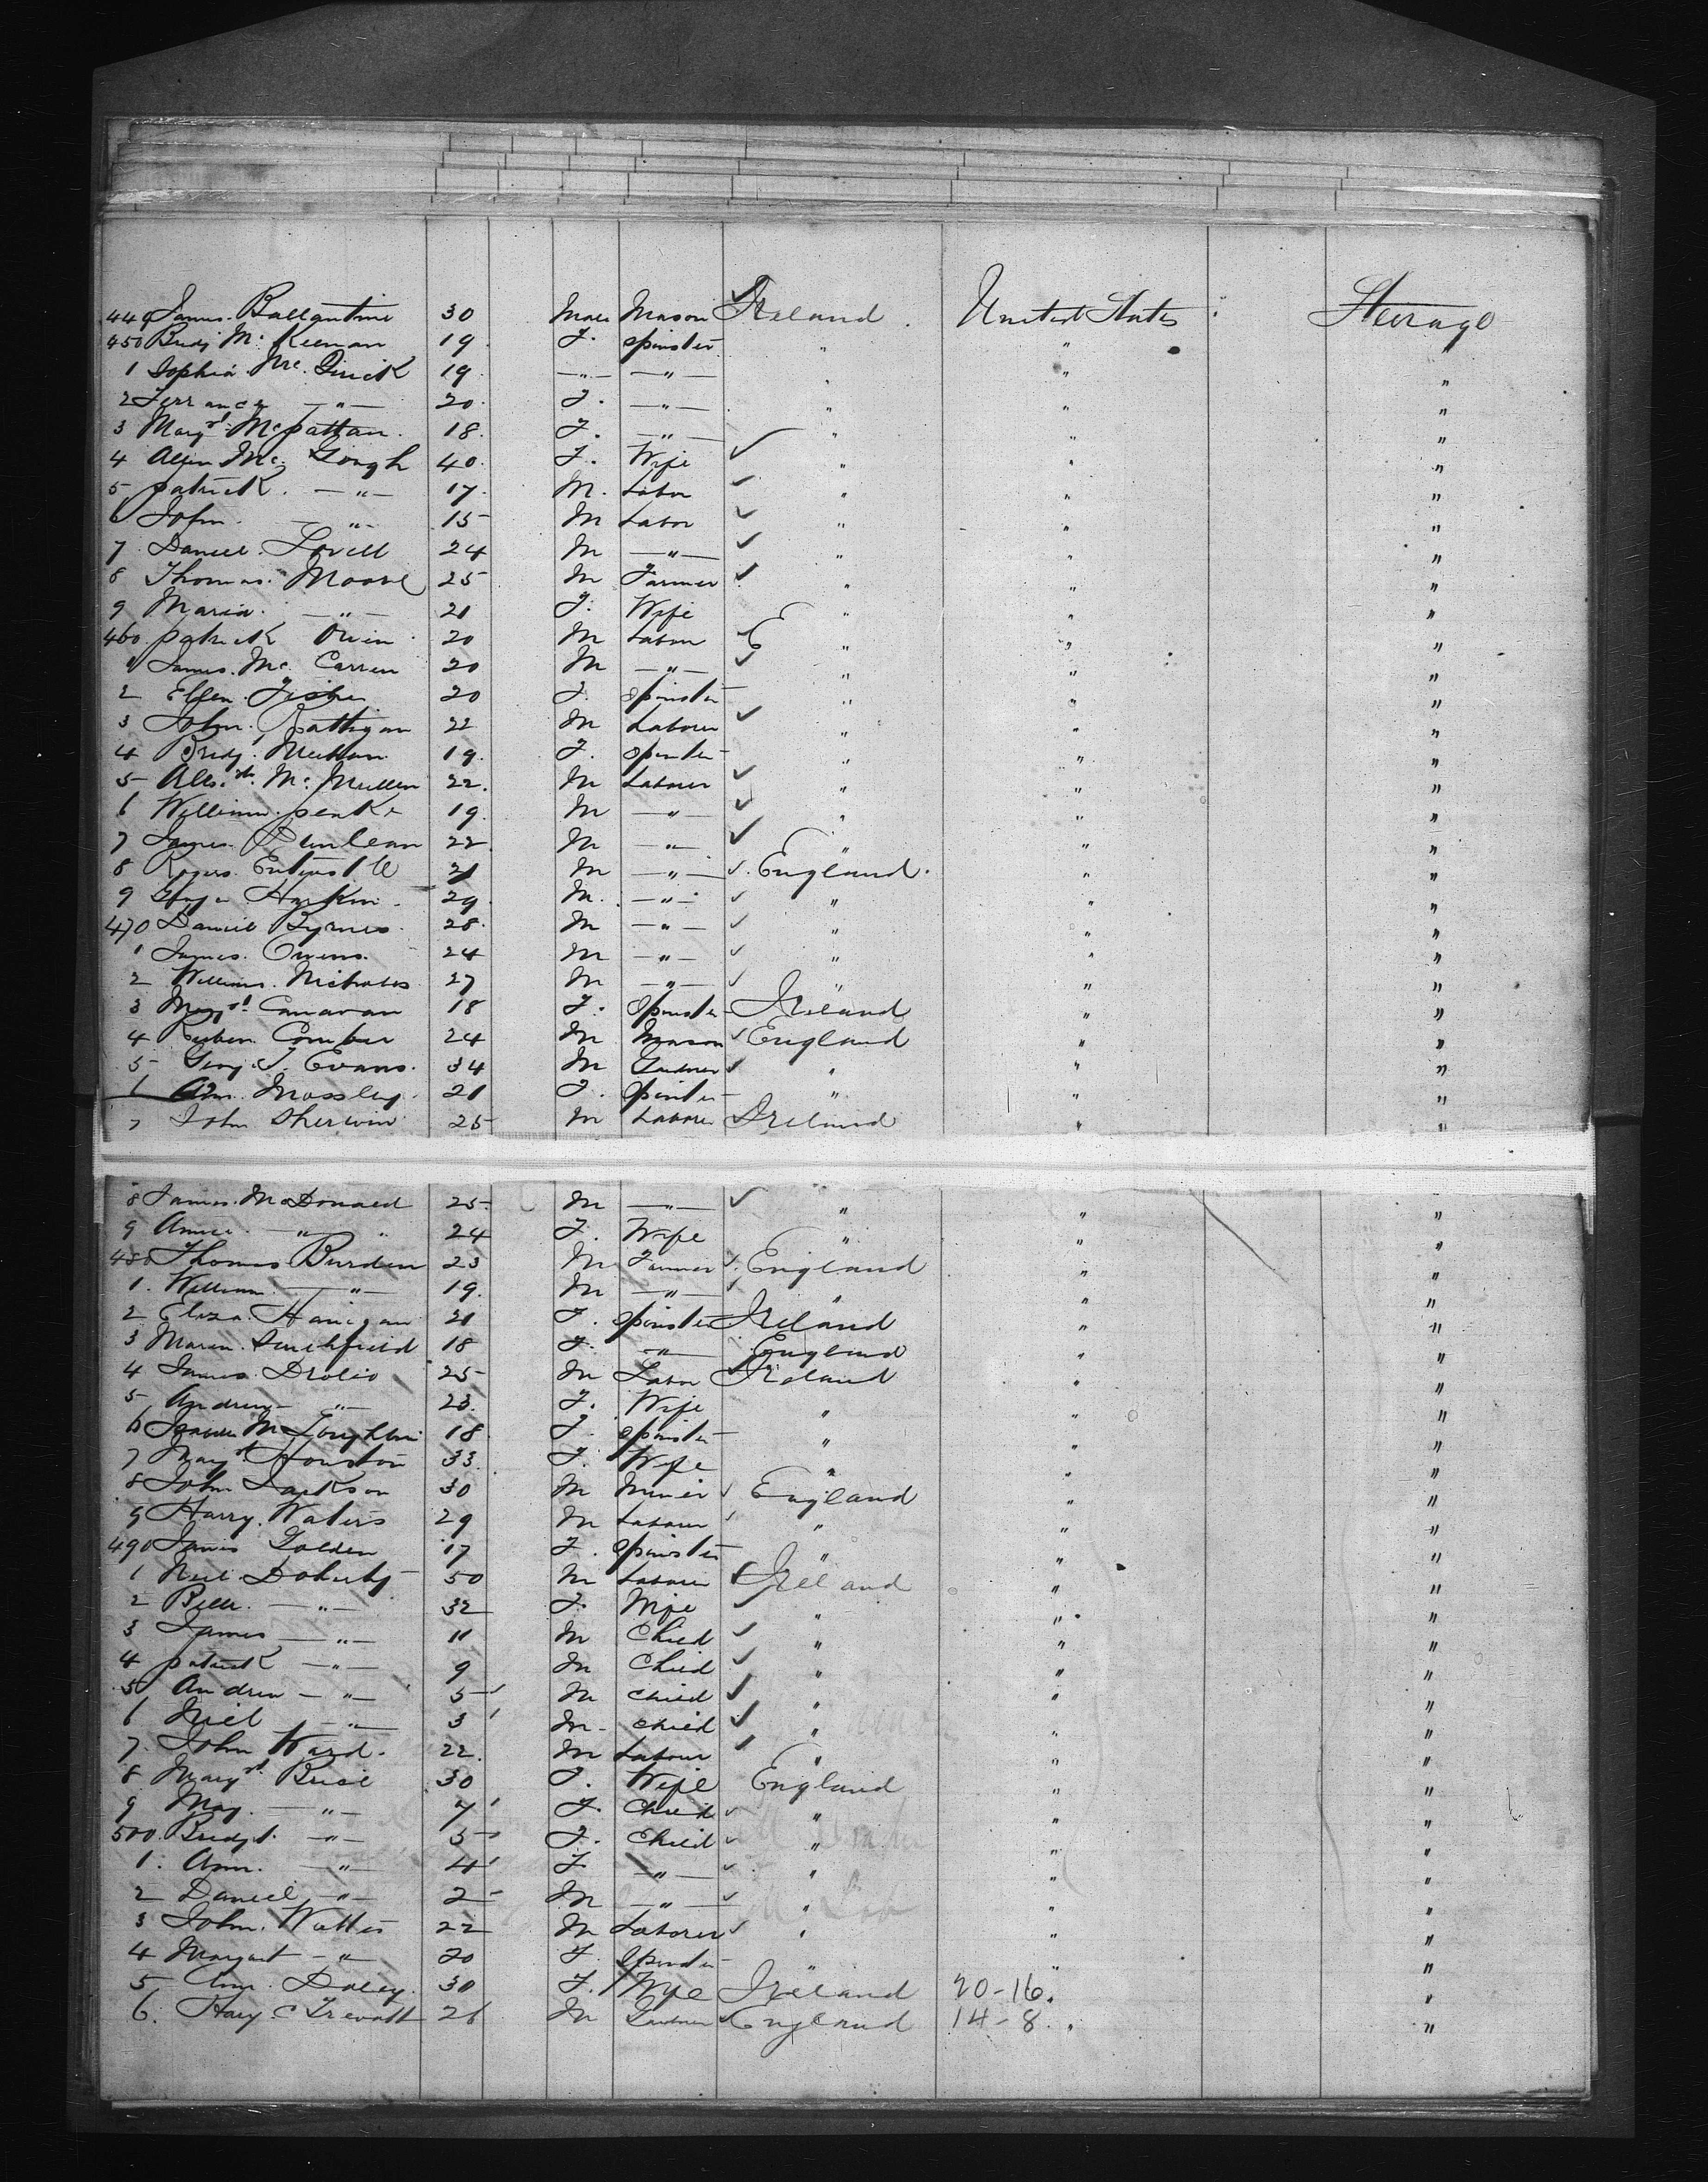 449 James Ballantine 30 Male Mason Ireland United States Steerage
450 Bridj Mc Keenan 19 F. Spinster " " "
1 Sophia Mc 19 —"— —"— " " "
2 Terrance —"— 20 F. —"— " " "
3 Margrt 18 F. —"— " " "
4 Mc Gough 40 F. Wife " " "
5 patrick —"— 17 M. Labor " " "
6 John —"— 15 M Labor " " "
7 Daniel Lovell 24 M —"— " " "
8 Thomas Moore 25 M Farmer " " "
9 Maria —"— 21 F. Wife " " "
460 patrick 20 M Labor E " " "
1 James Mc Carren 20 M —"— " " "
2 Ellen Fisher 20 F. Spinster " " "
3 John Rattigan 22 M Laborer " " "
4 Bridjt Meehan 19 F. Spinster " " "
5 Mc Mullen 22 M Laborer " " "
6 William 19 M —"— " " "
7 James 22 M —"— " " "
8 Rogers 21 M —"— England " "
9 Harkin 29 M. —"— " " "
470 Daniel Byrnes 28 M —"— " " "
1 James Owens 24 M —"— " " "
2 William Nicholas 27 M —"— " " "
3 Margrt Canavan 18 F. Spinster Ireland " "
4 Reuben Comber 24 M Mason England " "
5 Geoy. T. Evans 34 M Gardner " " "
6 Ann Mossley 21 F. Spinster " " "
7 John Sherwin 25 M Laborer Ireland " "
8 James McDonald 25 M —"— " " "
9 Annie —"— 24 F. Wife " " "
480 Thomas Burden 23 M Farmer England " "
1 William —"— 19 M —"— " " "
2 Eliza Hanigan 21 F. Spinster Ireland " "
3 Maria 18 F. —"— England " "
4 James 25 M Labor Ireland " "
5 Andrew —"— 23 F. Wife " " "
6 Isabella McLoughlin 18 F. Spinster " " "
7 Margrt Houston 33 F. Wife " " "
8 John Jackson 30 M Miner England " "
9 Harry Waters 29 M Laborer " " "
490 Janis Golden 17 F. Spinster " " "
1 Neil Doherty 50 M Laborer Ireland " "
2 Bella —"— 32 F. Wife " " "
3 James —"— 11 M Child " " "
4 patrick —"— 9 M Child " " "
5 Andrew —"— 5 M Child " " "
6 Niel —"— 3 M Child " " "
7 John Ward 22 M Labour " " "
8 Margrt 30 F. Wife England " "
9 May —"— 7 F. Child " " "
500 Bridgt —"— 5 F. Child " " "
1 Ann —"— 4 F —"— " " "
2 Daniel —"— 2 M —"— " " "
3 John Watters 22 M Laborer " " "
4 Margaret —"— 20 F. Spinster " " "
5 Ann Daley 30 F. Wife Ireland 20-16. "
6. Hary C Trevatt 26 M Gardner England 14-8. "